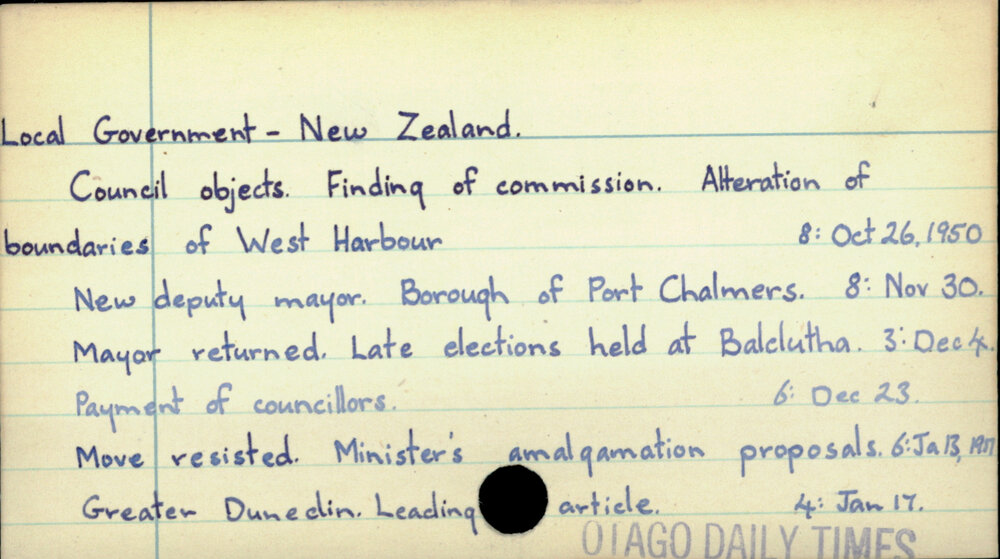 Local Government - New Zealand.
Council objects. Finding of commission. Alteration of
boundaries of West Harbour 8: Oct 26, 1950
New deputy mayor. Borough of Port Chalmers. 8: Nov 30.
Mayor returned. Late elections held at Balclutha. 3: Dec 4.
Payment of councillors. 6: Dec 23.
Move resisted. Minister's amalgamation proposals. 6: Ja 13,
Greater Dunedin. Leading article. 4: Jan 17.
OTAGO DAILY TIMES